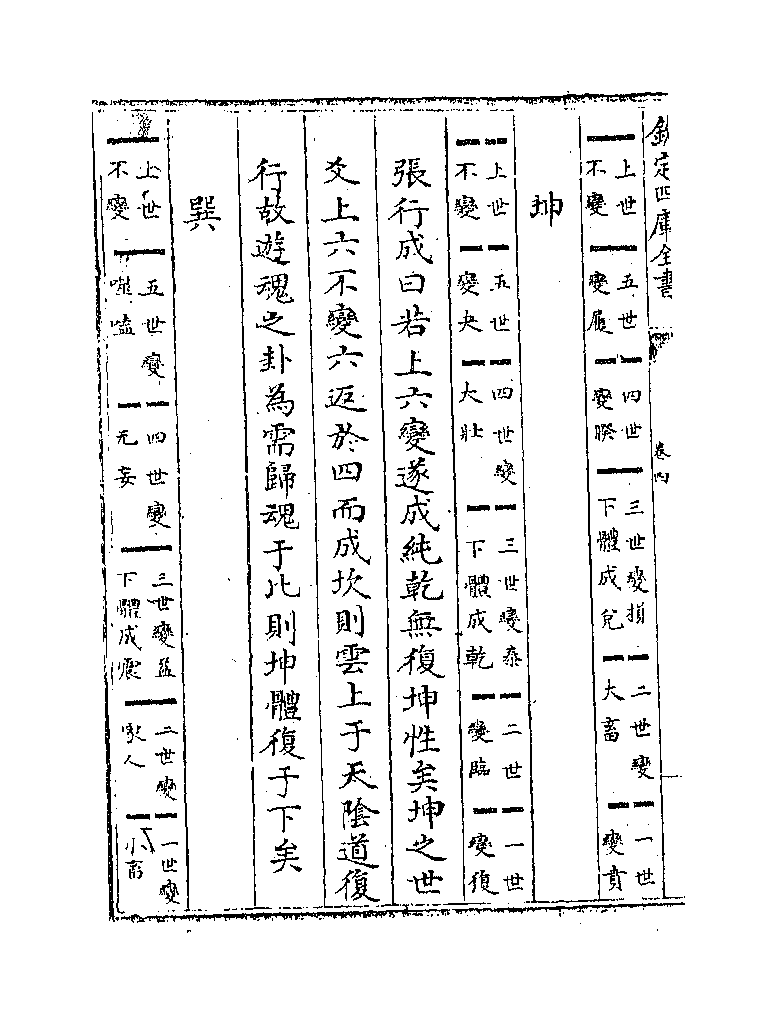 欽定四庫全書 卷四
上世不變 五世變履 四世變睽 三世變損下體成兌 二世變大畜 一世變賁
坤
上世不變 五世變夬 四世變大壯 三世變泰下體成乾 二世變臨 一世變復
張行成曰若上六變遂成純乾無復坤性矣坤之世
爻上六不變六返於四而成坎則雲上于天陰道復
行故遊魂之卦為需歸魂于比則坤體復于下矣
巽
上世不變 五世變噬嗑 四世變无妄 三世變益下體成震 二世變家人 一世變小畜